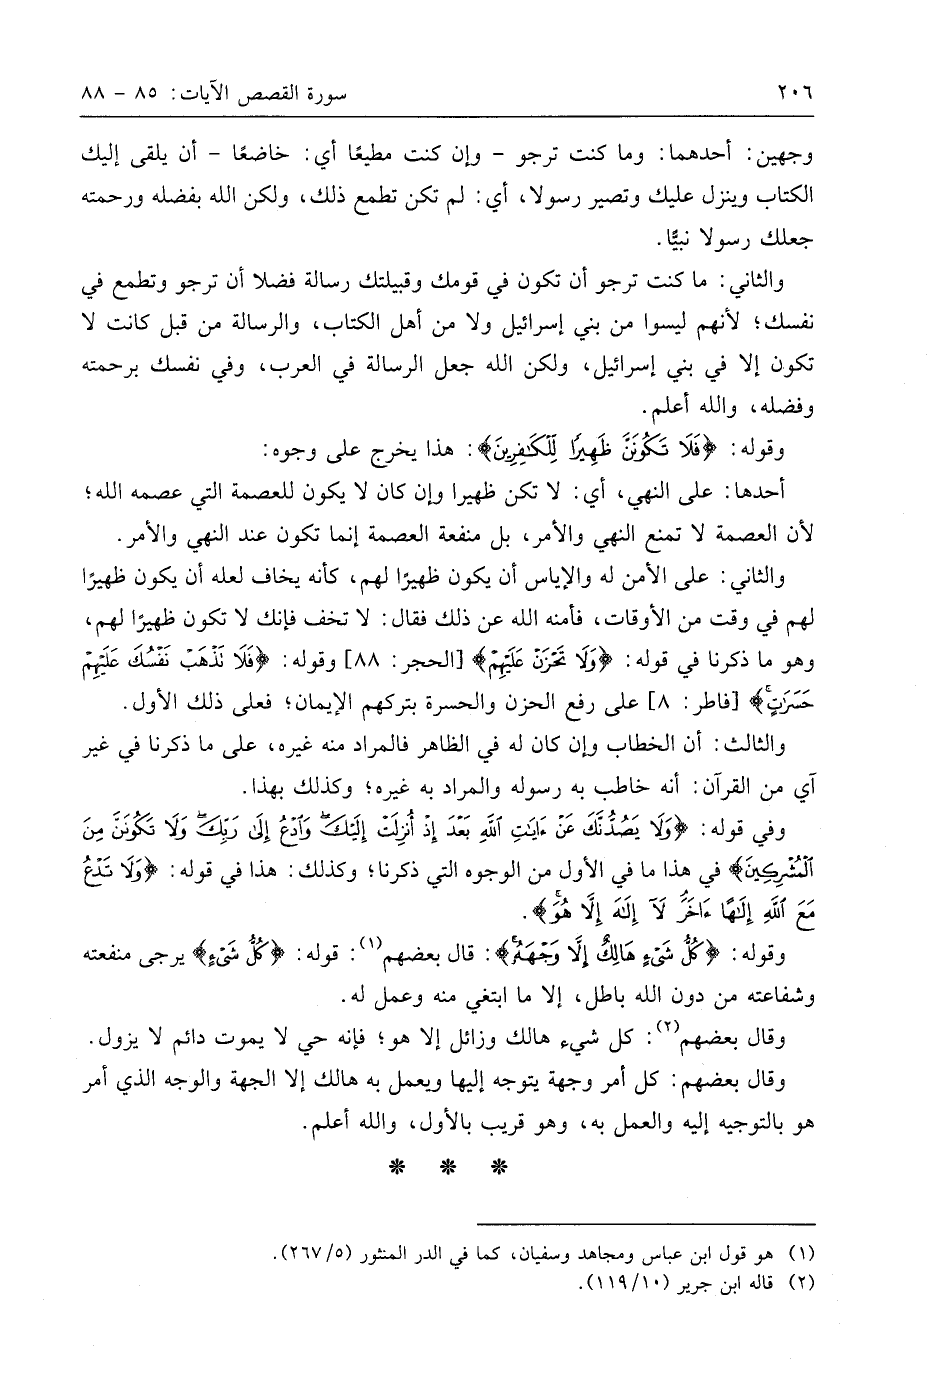 ٢٠٦ سورة القصص الآيات: ٨٥ - ٨٨
وجهين: أحدهما: وما كنت ترجو - وإن كنت مطيعًا أي: خاضعًا - أن يلقى إليك
الكتاب وينزل عليك وتصير رسولا، أي: لم تكن تطمع ذلك، ولكن الله بفضله ورحمته
جعلك رسولا نبيًّا.
والثاني: ما كنت ترجو أن تكون في قومك وقبيلتك رسالة فضلا أن ترجو وتطمع في
نفسك؛ لأنهم ليسوا من بني إسرائيل ولا من أهل الكتاب، والرسالة من قبل كانت لا
تكون إلا في بني إسرائيل، ولكن الله جعل الرسالة في العرب، وفي نفسك برحمته
وفضله، والله أعلم.
وقوله: ﴿فَلَا تَكُونَنَّ ظَهِيرًا لِّلْكَٰفِرِينَ﴾: هذا يخرج على وجوه:
أحدها: على النهي، أي: لا تكن ظهيرا وإن كان لا يكون للعصمة التي عصمه الله؛
لأن العصمة لا تمنع النهي والأمر، بل منفعة العصمة إنما تكون عند النهي والأمر.
والثاني: على الأمن له والإياس أن يكون ظهيرًا لهم، كأنه يخاف لعله أن يكون ظهيرًا
لهم في وقت من الأوقات، فأمنه الله عن ذلك فقال: لا تخف فإنك لا تكون ظهيرًا لهم،
وهو ما ذكرنا في قوله: ﴿وَلَا تَحْزَنْ عَلَيْهِمْ﴾ [الحجر: ٨٨] وقوله: ﴿فَلَا نَذْهَبْ نَفْسُكَ عَلَيْهِمْ
حَسَرَٰتٍۚ﴾ [فاطر: ٨] على رفع الحزن والحسرة بتركهم الإيمان؛ فعلى ذلك الأول.
والثالث: أن الخطاب وإن كان له في الظاهر فالمراد منه غيره، على ما ذكرنا في غير
آي من القرآن: أنه خاطب به رسوله والمراد به غيره؛ وكذلك بهذا.
وفي قوله: ﴿وَلَا يَصُدُّنَّكَ عَنْ ءَايَٰتِ ٱللَّهِ بَعْدَ إِذْ أُنزِلَتْ إِلَيْكَۖ وَٱدْعُ إِلَىٰ رَبِّكَۖ وَلَا تَكُونَنَّ مِنَ
ٱلْمُشْرِكِينَ﴾ في هذا ما في الأول من الوجوه التي ذكرنا؛ وكذلك: هذا في قوله: ﴿وَلَا تَدْعُ
مَعَ ٱللَّهِ إِلَٰهًا ءَاخَرَۘ لَآ إِلَٰهَ إِلَّا هُوَۚ﴾.
وقوله: ﴿كُلُّ شَىْءٍ هَالِكٌ إِلَّا وَجْهَهُۥۚ﴾: قال بعضهم(١): قوله: ﴿كُلُّ شَىْءٍ﴾ يرجى منفعته
وشفاعته من دون الله باطل، إلا ما ابتغي منه وعمل له.
وقال بعضهم(٢): كل شيء هالك وزائل إلا هو؛ فإنه حي لا يموت دائم لا يزول.
وقال بعضهم: كل أمر وجهة يتوجه إليها ويعمل به هالك إلا الجهة والوجه الذي أمر
هو بالتوجيه إليه والعمل به، وهو قريب بالأول، والله أعلم.
* * *
(١) هو قول ابن عباس ومجاهد وسفيان، كما في الدر المنثور (٢٦٧/٥).
(٢) قاله ابن جرير (١١٩/١٠).